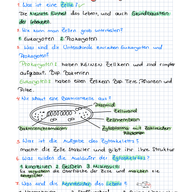 • Was ist eine Zelle?
Die kleinste Einheit des Lebens, und auch Grundbaustein
der Lebewesen.
• Wie kann man Zellen grob
→ Eukaryoten & Prokaryoten
• Was sind die Unterschiede zwischen Eukaryoten und
Prokaryoten?
Prokaryoten: haben keinen Zellkern und sind simpler
aufgebaut. Bsp. Bakterien
Eukaryoten: haben einen Zellkern Bsp. Tiere, Pflanzen und
Pilze.
• Wie sieht eine Bakterienzelle aus?
Plasmid
Zellwand
Zellmembran
Bakterienchromosom
Zytoplasma mit Ribosomen
• Was ist die Aufgabe des Zytoskeletts?
macht die Zelle stabiler und gibt ihr ihre Struktur
• Was würden die Ausläufer der
• Was sind die Kennzeichen des Lebens?